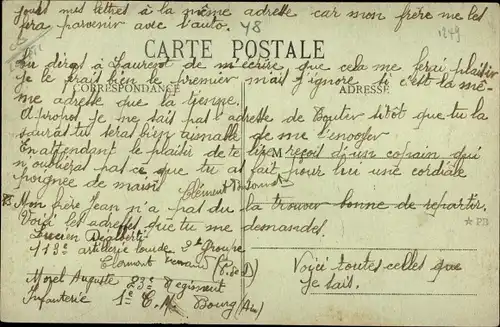 mes lettres à la même adresse car mon frère me les
fera parvenir avec l'auto. 48
1249
CARTE POSTALE
Tu diras à Laurent de m'écrire que cela me ferai plaisir
je le frait bien le premier mait j'ignore si c'est la mê-
CORRESPONDANCE ADRESSE
me adresse que la tienne.
A propos je ne sait pas l'adresse de Boutier sitôt que tu la
sauras tu seras bien aimable de me l'envoyer
En attendant le plaisir de te lire M reçoit d'un copain qui
n'oubliera pas ce que tu as fait pour lui une cordiale
poignée de main Clément
Mon frère Jean n'a pas du la trouver bonne de repartir.
Voici les adresses que tu me demandes.
Lucien
113e artillerie lourde 3e Groupe
Clermont Ferrand (P. de D)
Morel Auguste 23e Regiment
Infanterie 1e C. M Bourg (Ain)
PB
Voici toutes celles que
je sais.